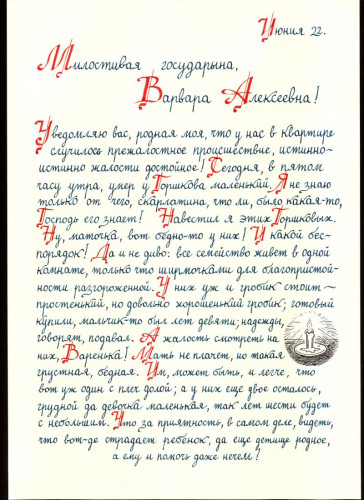 Июния 22.
Милостивая государыня,
Варвара Алексеевна!
Уведомляю вас, родная моя, что у нас в квартире
случилось прежалостное происшествие, истинно-
истинно жалости достойное! Сегодня, в пятом
часу утра, умер у Горшкова маленький. Я не знаю
только от чего, скарлатина, что ли, было какая-то,
Господь его знает! Навестил я этих Горшковых.
Ну, маточка, вот бедно-то у них! И какой бес-
порядок! Да и не диво: все семейство живет в одной
комнате, только что ширмочками для благопристой-
ности разгороженной. У них уж и гробик стоит —
простенький, но довольно хорошенький гробик; готовый
купили, мальчик-то был лет девяти; надежды,
говорят, подавал. А жалость смотреть на
них, Варенька! Мать не плачет, но такая
грустная, бедная. Им, может быть, и легче, что
вот уж один с плеч долой; а у них еще двое осталось,
грудной да девочка маленькая, так лет шести будет
с небольшим. Что за приятность, в самом деле, видеть,
что вот-де страдает ребенок, да еще детище родное,
а ему и помочь даже нечем!